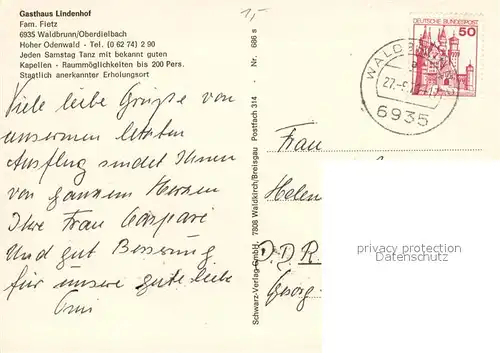 Gasthaus Lindenhof
Fam. Fietz
6935 Waldbrunn/Oberdielbach
Hoher Odenwald - Tel. (0 62 74) 2 90
Jeden Samstag Tanz mit bekannt guten
Kapellen - Raummöglichkeiten bis 200 Pers.
Staatlich anerkannter Erholungsort
Viele liebe Grüße von
unserem letzten
Ausflug sendet Ihnen
von ganzem Herzen
Ihre Frau Caspari
Und gut Besserung
für unsere gute liebe
Omi
1,-
Schwarz-Verlag GmbH. · 7808 Waldkirch/Breisgau Postfach 314 · Nr. 686 s
DEUTSCHE BUNDESPOST
50
6935
Frau
Helen
D.D.R.
Georg-
privacy protection
Datenschutz